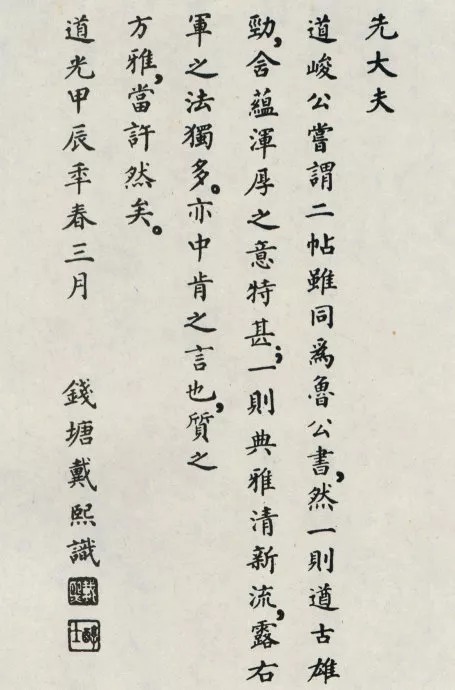 先大夫
道峻公嘗謂二帖雖同爲魯公書，然一則遒古雄
勁，含蘊渾厚之意特甚；一則典雅清新流，露右
軍之法獨多。亦中肯之言也，質之
方雅，當許然矣。
道光甲辰年春三月　錢塘戴熙識
戴熙
醇士